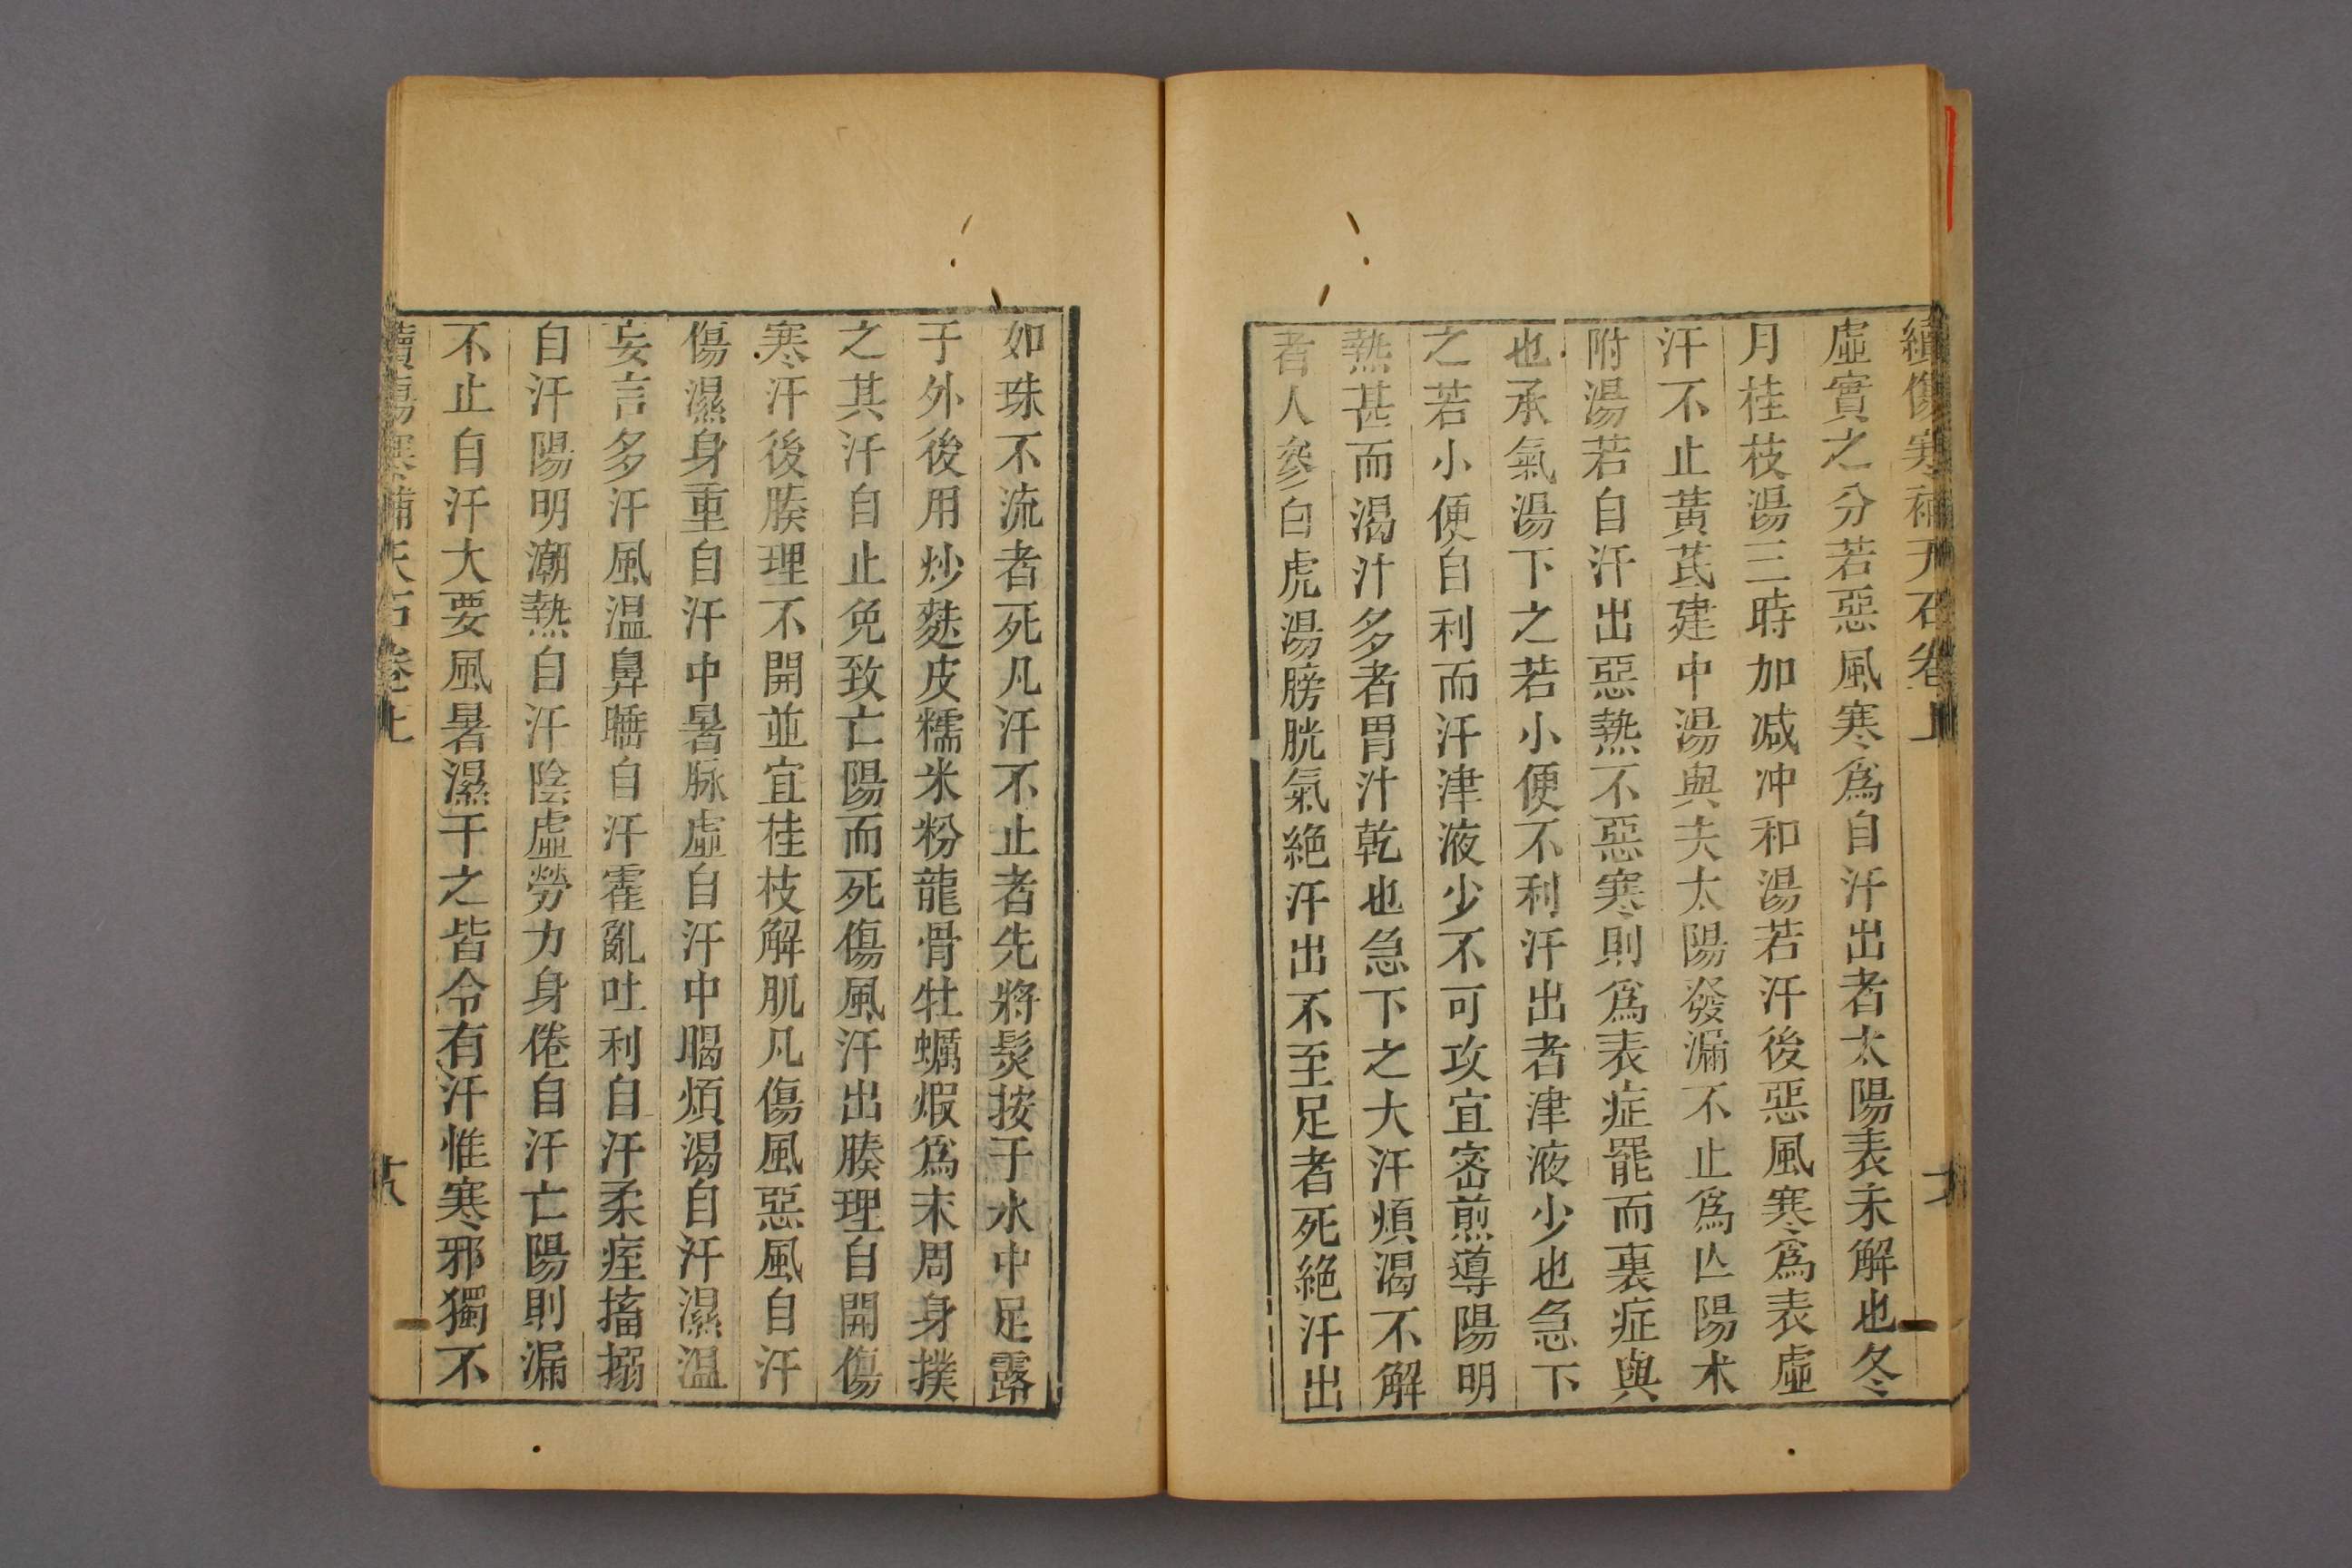 續傷寒補天石卷上
虛實之分若惡風寒爲自汗出者太陽表未解也冬
月桂枝湯三時加减冲和湯若汗後惡風寒爲表虛
汗不止黃芪建中湯與夫太陽發漏不止爲亾陽术
附湯若自汗出惡熱不惡寒則爲表症罷而裏症與
也承氣湯下之若小便不利汗出者津液少也急下
之若小便自利而汗津液少不可攻宜宻煎導陽明
熱甚而渴汁多者胃汁乾也急下之大汗煩渴不解
者人參白虎湯膀胱氣絶汗出不至足者死絶汗出
如珠不流者死凡汗不止者先將髮按于水中足露
于外後用炒麩皮糯米粉龍骨牡蠣煆爲末周身撲
之其汗自止免致亡陽而死傷風汗出腠理自開傷
寒汗後腠理不開並宜桂枝解肌凡傷風惡風自汗
傷濕身重自汗中暑脉虛自汗中暍煩渴自汗濕温
妄言多汗風温鼻睡自汗霍亂吐利自汗柔痓搐搦
自汗陽明潮熱自汗陰虛勞力身倦自汗亡陽則漏
不止自汗大要風暑濕干之皆令有汗惟寒邪獨不
續傷寒補天石卷上